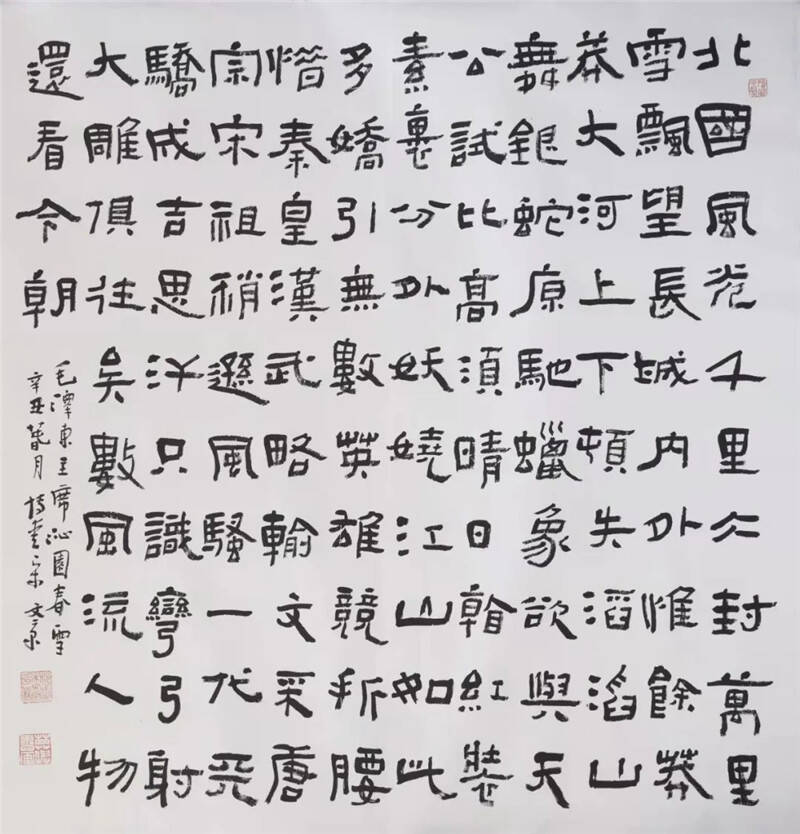 北國風光千里仌封萬里
雪飄望長城內外惟餘莽
莽大河上下頓失滔滔山
舞銀蛇原馳蠟象欲與天
公試比高須晴日看紅裝
素裹分外妖嬈江山如此
多嬌引無數英雄競折腰
惜秦皇漢武略輸文采唐
宗宋祖稍遜風騷一代天
驕成吉思汗只識彎弓射
大雕俱往矣數風流人物
還看今朝
毛澤東主席沁園春雪
辛丑月宋文京